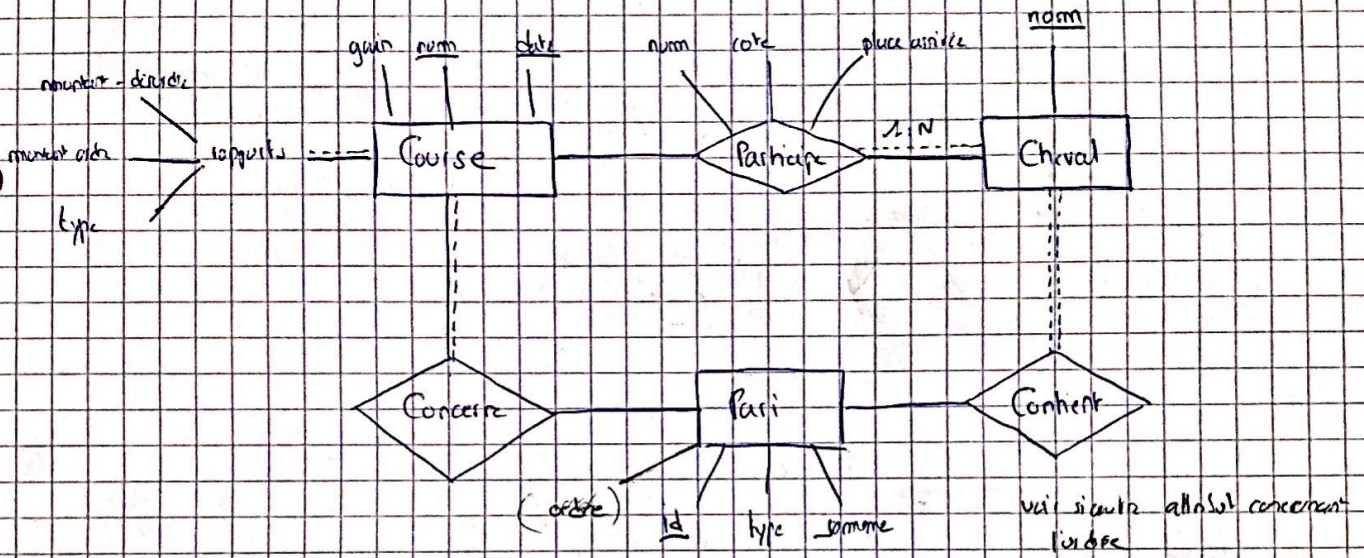 nom
gain num date
num cote place arrivée
montant-dividie
montant ordr
rapports
Course
Participe
1,N
Cheval
type
Concerne
Pari
Contient
(ordre)
id type somme
voir si autre concernant
l'ordre